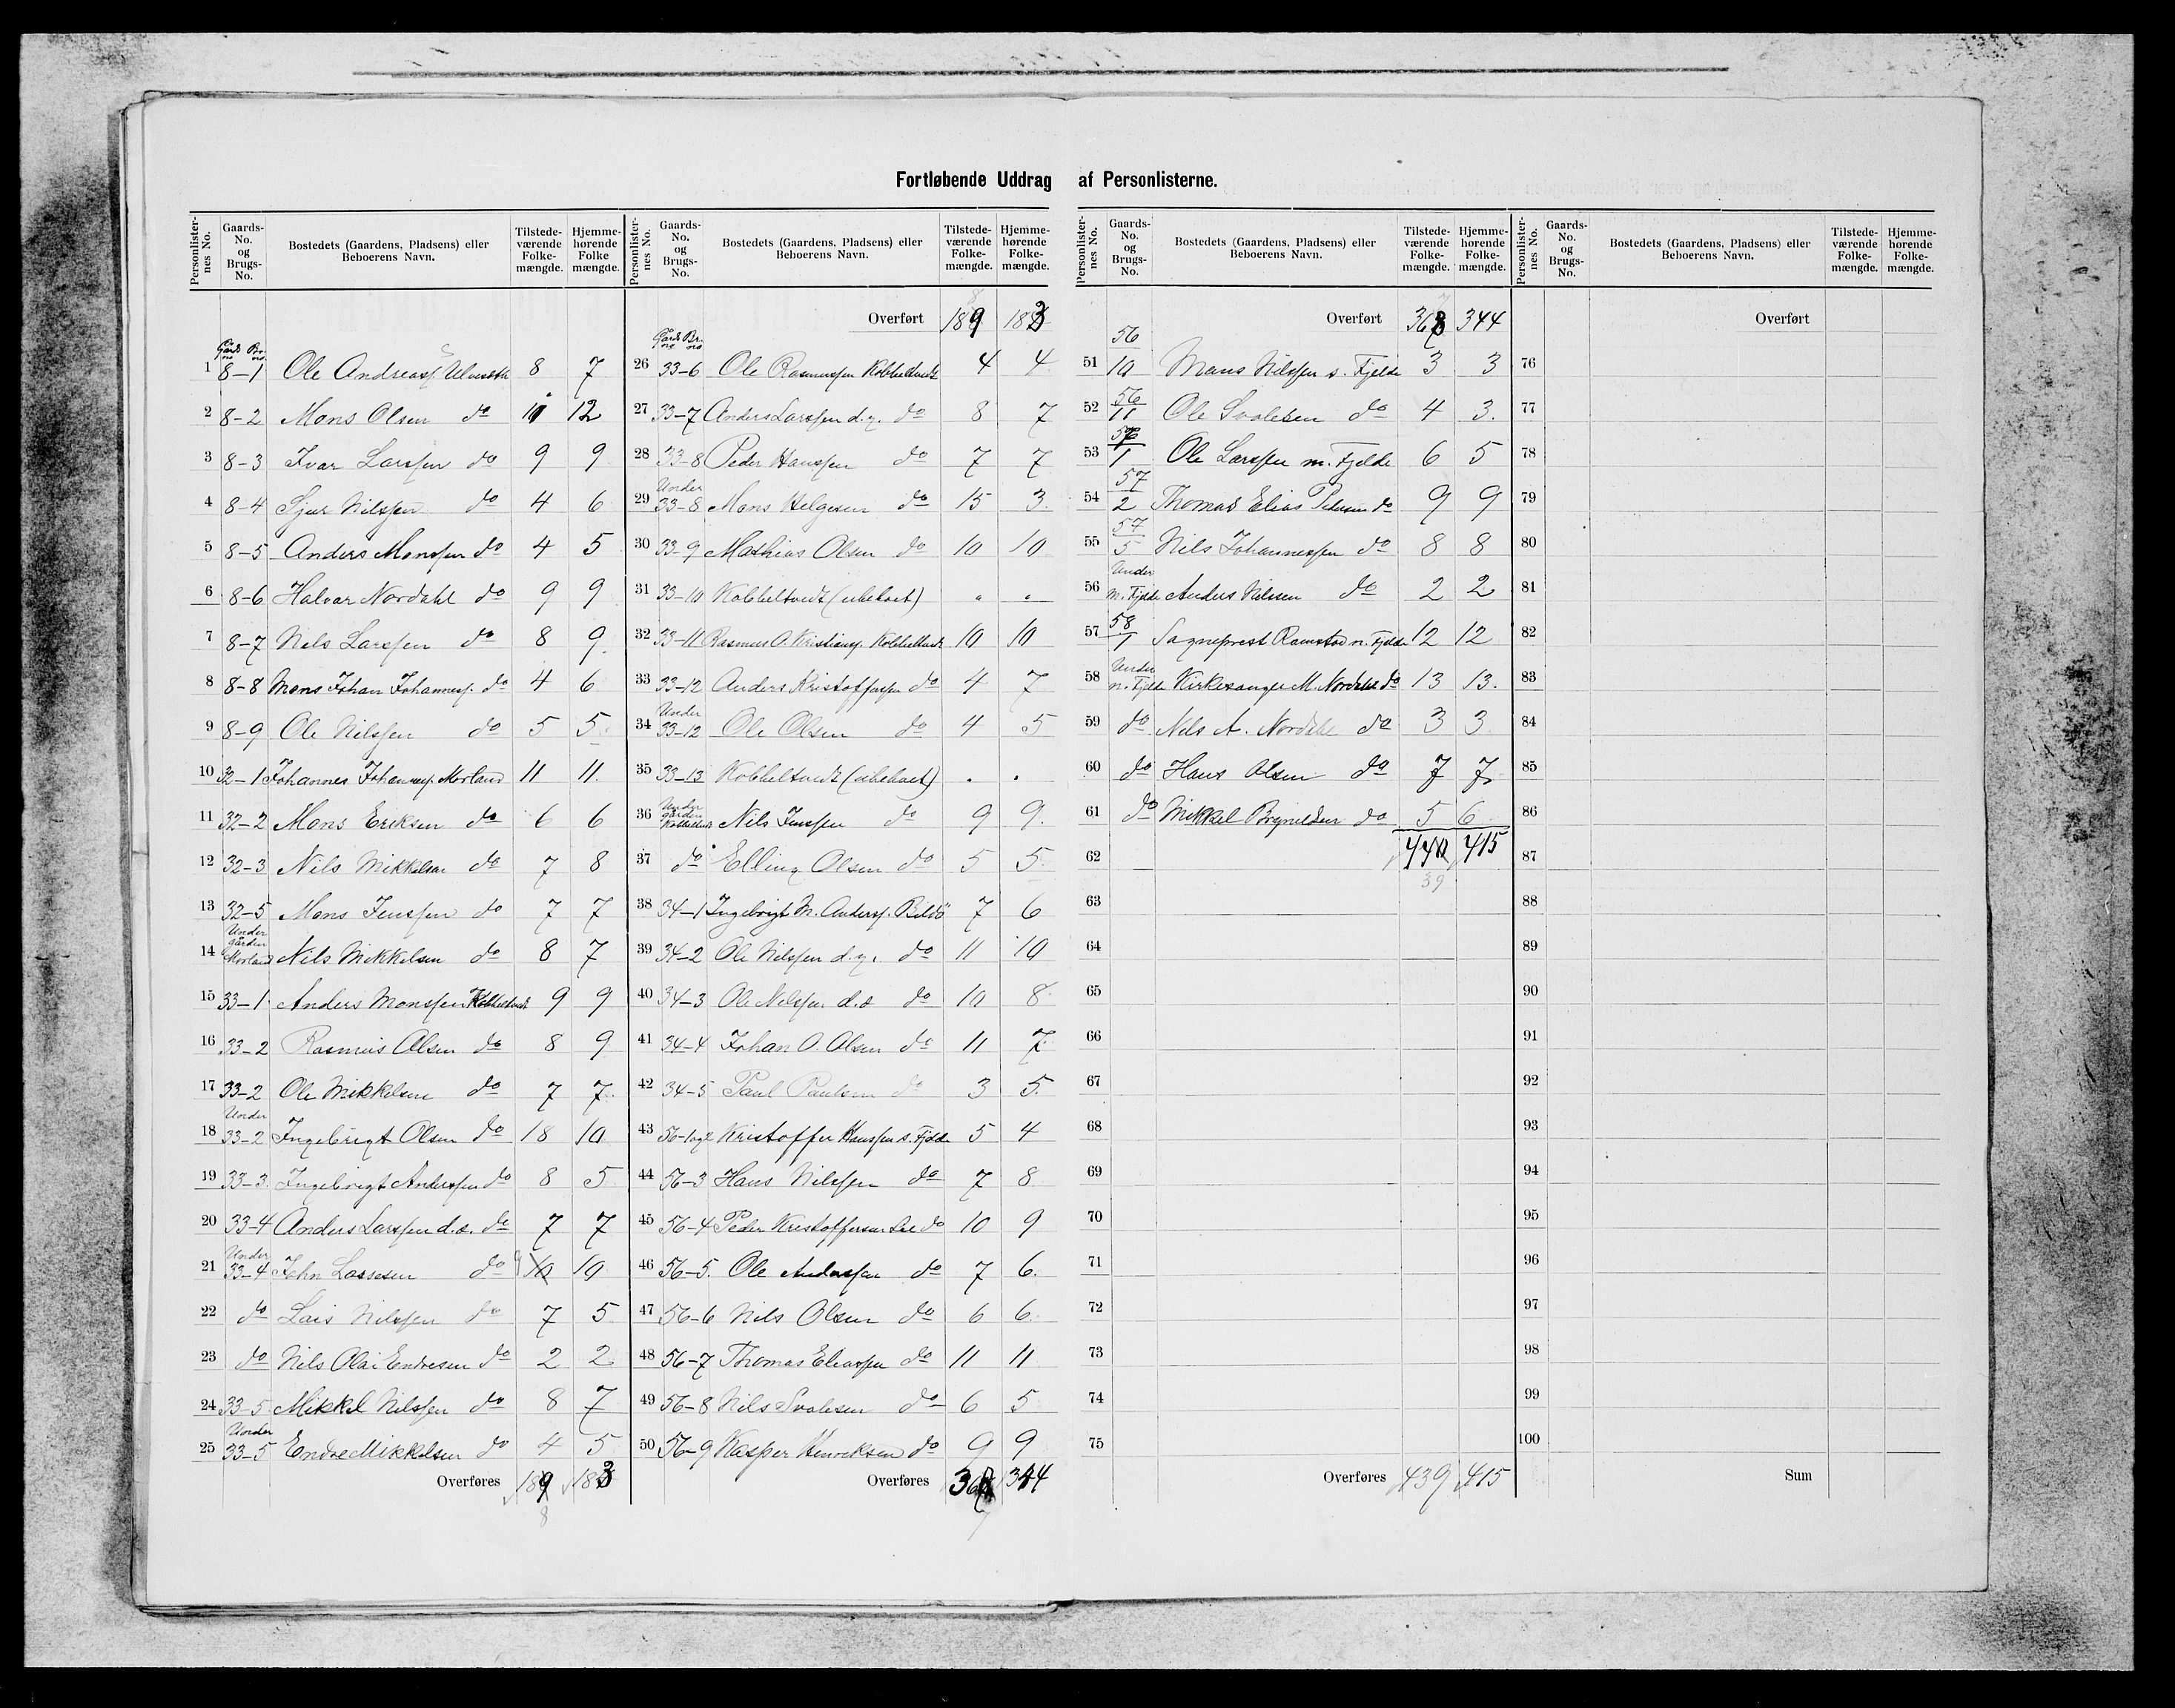 Fortløbende Uddrag af Personlisterne.
Personlisternes No. | Gaards-No. og Brugs-No. | Bostedets (Gaardens, Pladsens) eller Beboerens Navn. | Tilstedeværende Folkemængde. | Hjemmehørende Folkemængde.
Gårds no Br. no
1 8-1 Ole Andreasf. 8 7
2 8-2 Mons Olsen do 11 12
3 8-3 Ivar Larssen do 9 9
4 8-4 Sjur Nilssen do 4 6
5 8-5 Anders Monssen do 4 5
6 8-6 Halvar Nordahl do 9 9
7 8-7 Nils Larssen do 8 9
8 8-8 Mons Johan Johannesf. do 4 6
9 8-9 Ole Nilssen do 5 5
10 32-1 Johannes Johannesf. Morland 11 11
11 32-2 Mons Eriksen do 6 6
12 32-3 Nils Mikkelsen do 7 8
13 32-5 Mons Jenssen do 7 7
14 Under gården Morland Nils Mikkelsen do 8 7
15 33-1 Anders Monssen Kobbeltvedt 9 9
16 33-2 Rasmus Olsen do 8 9
17 33-2 Ole Mikkelsen do 7 7
18 Under 33-2 Ingebrigt Olsen do 18 10
19 33-3 Ingebrigt Anderssen do 8 5
20 33-4 Anders Larssen d.æ. do 7 7
21 Under 33-4 John Lassesen do 9 10 10
22 do Lars Nilssen do 7 5
23 do Nils Olai Endresen do 2 2
24 33-5 Mikkel Nilssen do 8 7
25 Under 33-5 Endre Mikkelsen do 4 5
Overføres 189 183
8
Overført 189 183
8
Gårds no Br. no
26 33-6 Ole Rasmussen Kobbeltvedt 4 4
27 33-7 Anders Larssen d.y. do 8 7
28 33-8 Peder Hanssen do 7 7
29 Under 33-8 Mons Helgesen do 15 3
30 33-9 Mathias Olsen do 10 10
31 33-10 Kobbeltvedt (ubeboet) " "
32 33-11 Rasmus O. Kristiansf. Kobbeltvedt 10 10
33 33-12 Anders Kristoffersen do 4 7
34 Under 33-12 Ole Olsen do 4 5
35 33-13 Kobbeltvedt (ubeboet) . .
36 Under gården Kobbeltvedt Nils Jenssen do 9 9
37 do Elling Olsen do 5 5
38 34-1 Ingebrigt M. Andersf. Bildö 7 6
39 34-2 Ole Nilssen d.y. do 11 10
40 34-3 Ole Nilssen d.æ do 10 8
41 34-4 Johan O. Olsen do 11 7
42 34-5 Paul Paulsen do 3 5
43 56-1 og 2 Kristoffer Hanssen s. Fjelde 5 4
44 56-3 Hans Nilssen do 7 8
45 56-4 Peder Kristoffersen do 10 9
46 56-5 Ole Anderssen do 7 6
47 56-6 Nils Olsen do 6 6
48 56-7 Thomas Eliassen do 11 11
49 56-8 Nils Svalesen do 6 5
50 56-9 Kasper Henriksen do 9 9
Overføres 368 344
7
Overført 368 344
7
51 56/10 Mons Nilssen s. Fjelde 3 3
52 56/11 Ole Svalesen do 4 3
53 57/1 Ole Larssen m. Fjelde 6 5
54 57/2 Thomas Elias Pedersen do 9 9
55 57/5 Nils Johannessen do 8 8
56 Under m. Fjelde Anders Nilssen do 2 2
57 58/1 Sogneprest Ramstad n. Fjelde 12 12
58 Under n. Fjelde Kirkesanger M. Nordahl do 13 13
59 do Nils A. Nordahl do 3 3
60 do Hans Olsen do 7 7
61 do Mikkel Brynildsen do 5 6
62 440 415
39
63
64
65
66
67
68
69
70
71
72
73
74
75
Overføres 439 415
Overført
76
77
78
79
80
81
82
83
84
85
86
87
88
89
90
91
92
93
94
95
96
97
98
99
100
Sum